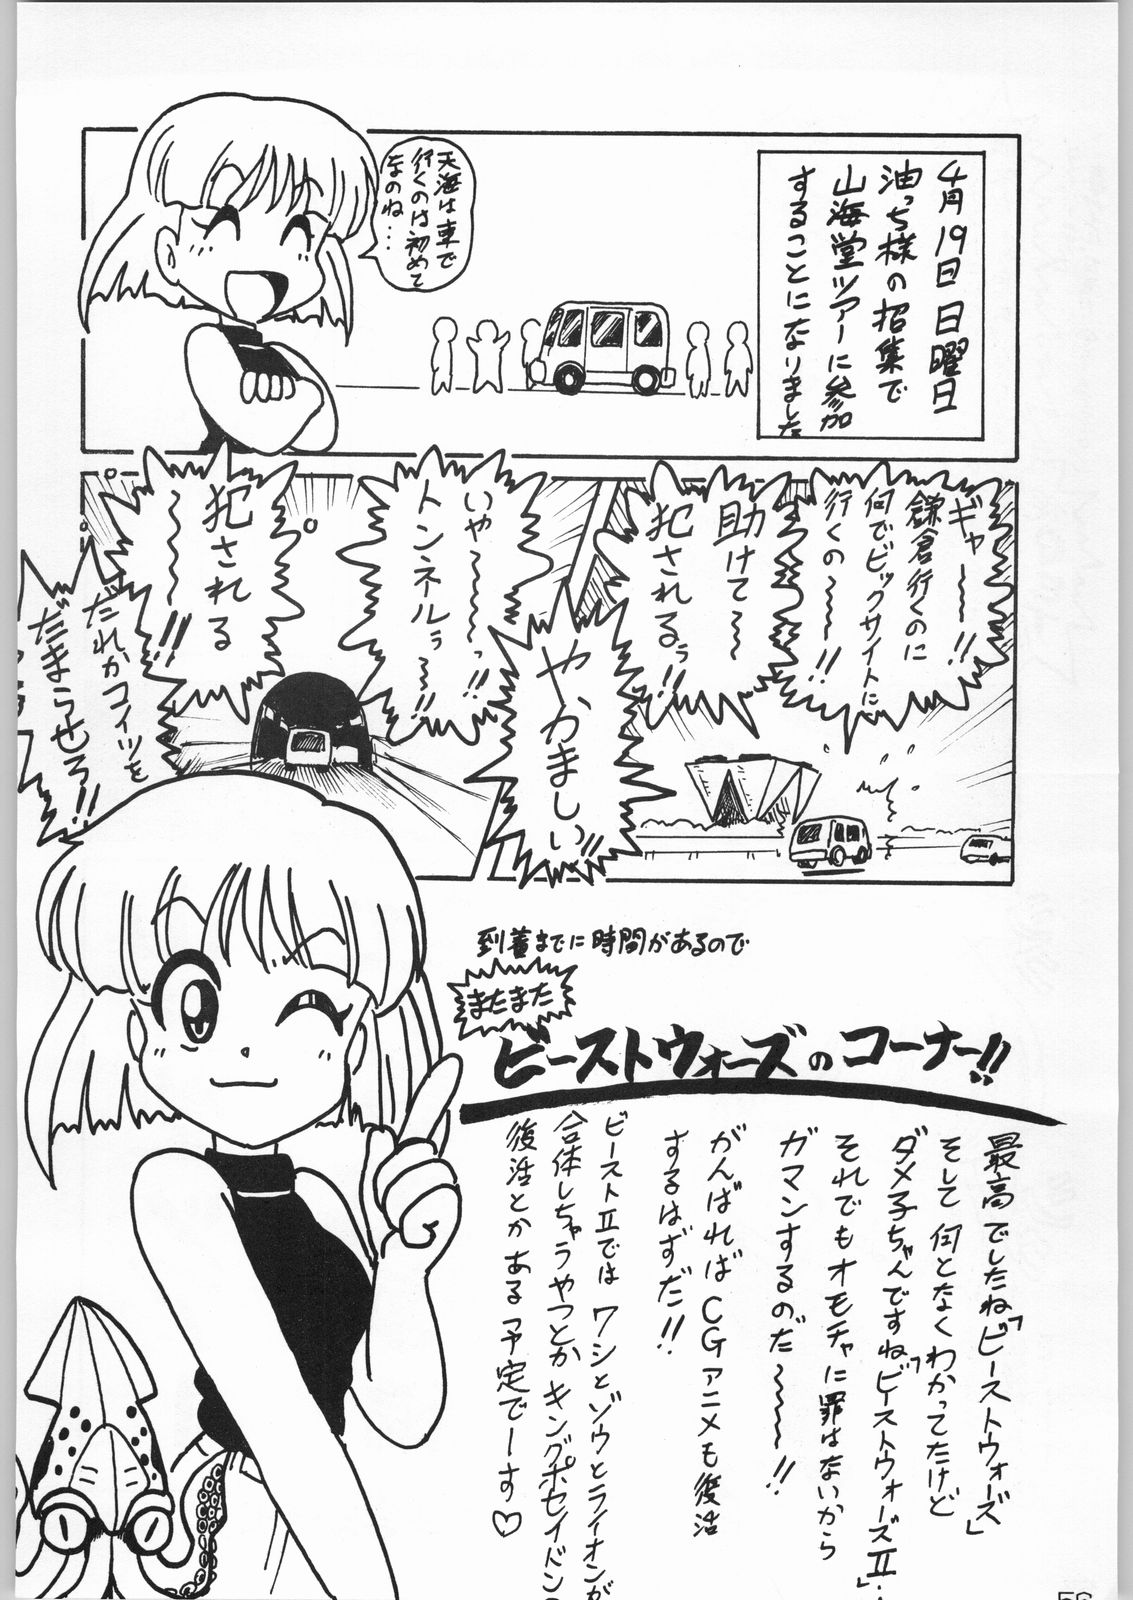 4月19日 日曜日
油っち様の招集で
山海堂ツアーに参加
することになりました
天海は車で
行くのは初めて
なのね…
ギャー〜〜!!
鎌倉行くのに
何でビックサイトに
行くの〜〜〜!!
助けて〜〜
犯されるぅ!!
やかましい!!
いや〜〜〜っ!!
トンネルぅ〜〜!!
犯される
〜〜〜〜!!
だれかコイツを
だまらせろ!!
到着までに時間があるので
またまた
ビーストウォーズのコーナー!!
最高でしたね「ビーストウォーズ」
そして何となくわかってたけど
ダメ子ちゃんですね「ビーストウォーズⅡ」
それでもオモチャに罪はないから
ガマンするのだ〜〜〜!!
がんばればCGアニメも復活
するはずだ!!
ビーストⅡではワシとゾウとライオンが
合体しちゃうやつとかキングポセイドンの
復活とかある予定でーす♡